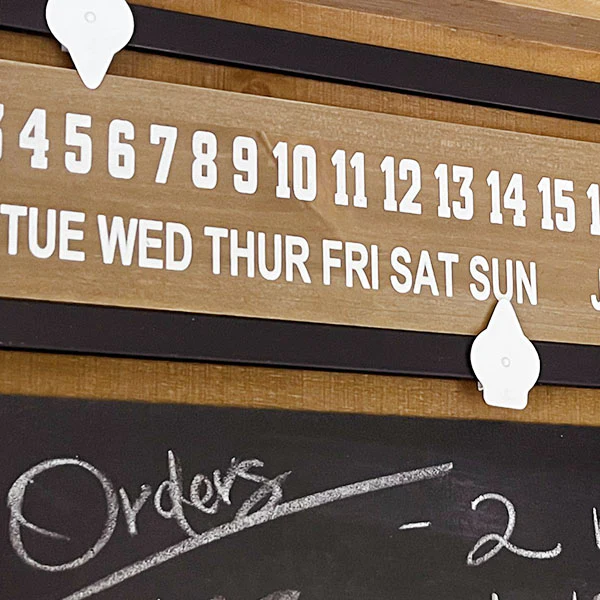 4 5 6 7 8 9 10 11 12 13 14 15
TUE WED THUR FRI SAT SUN
Orders
- 2